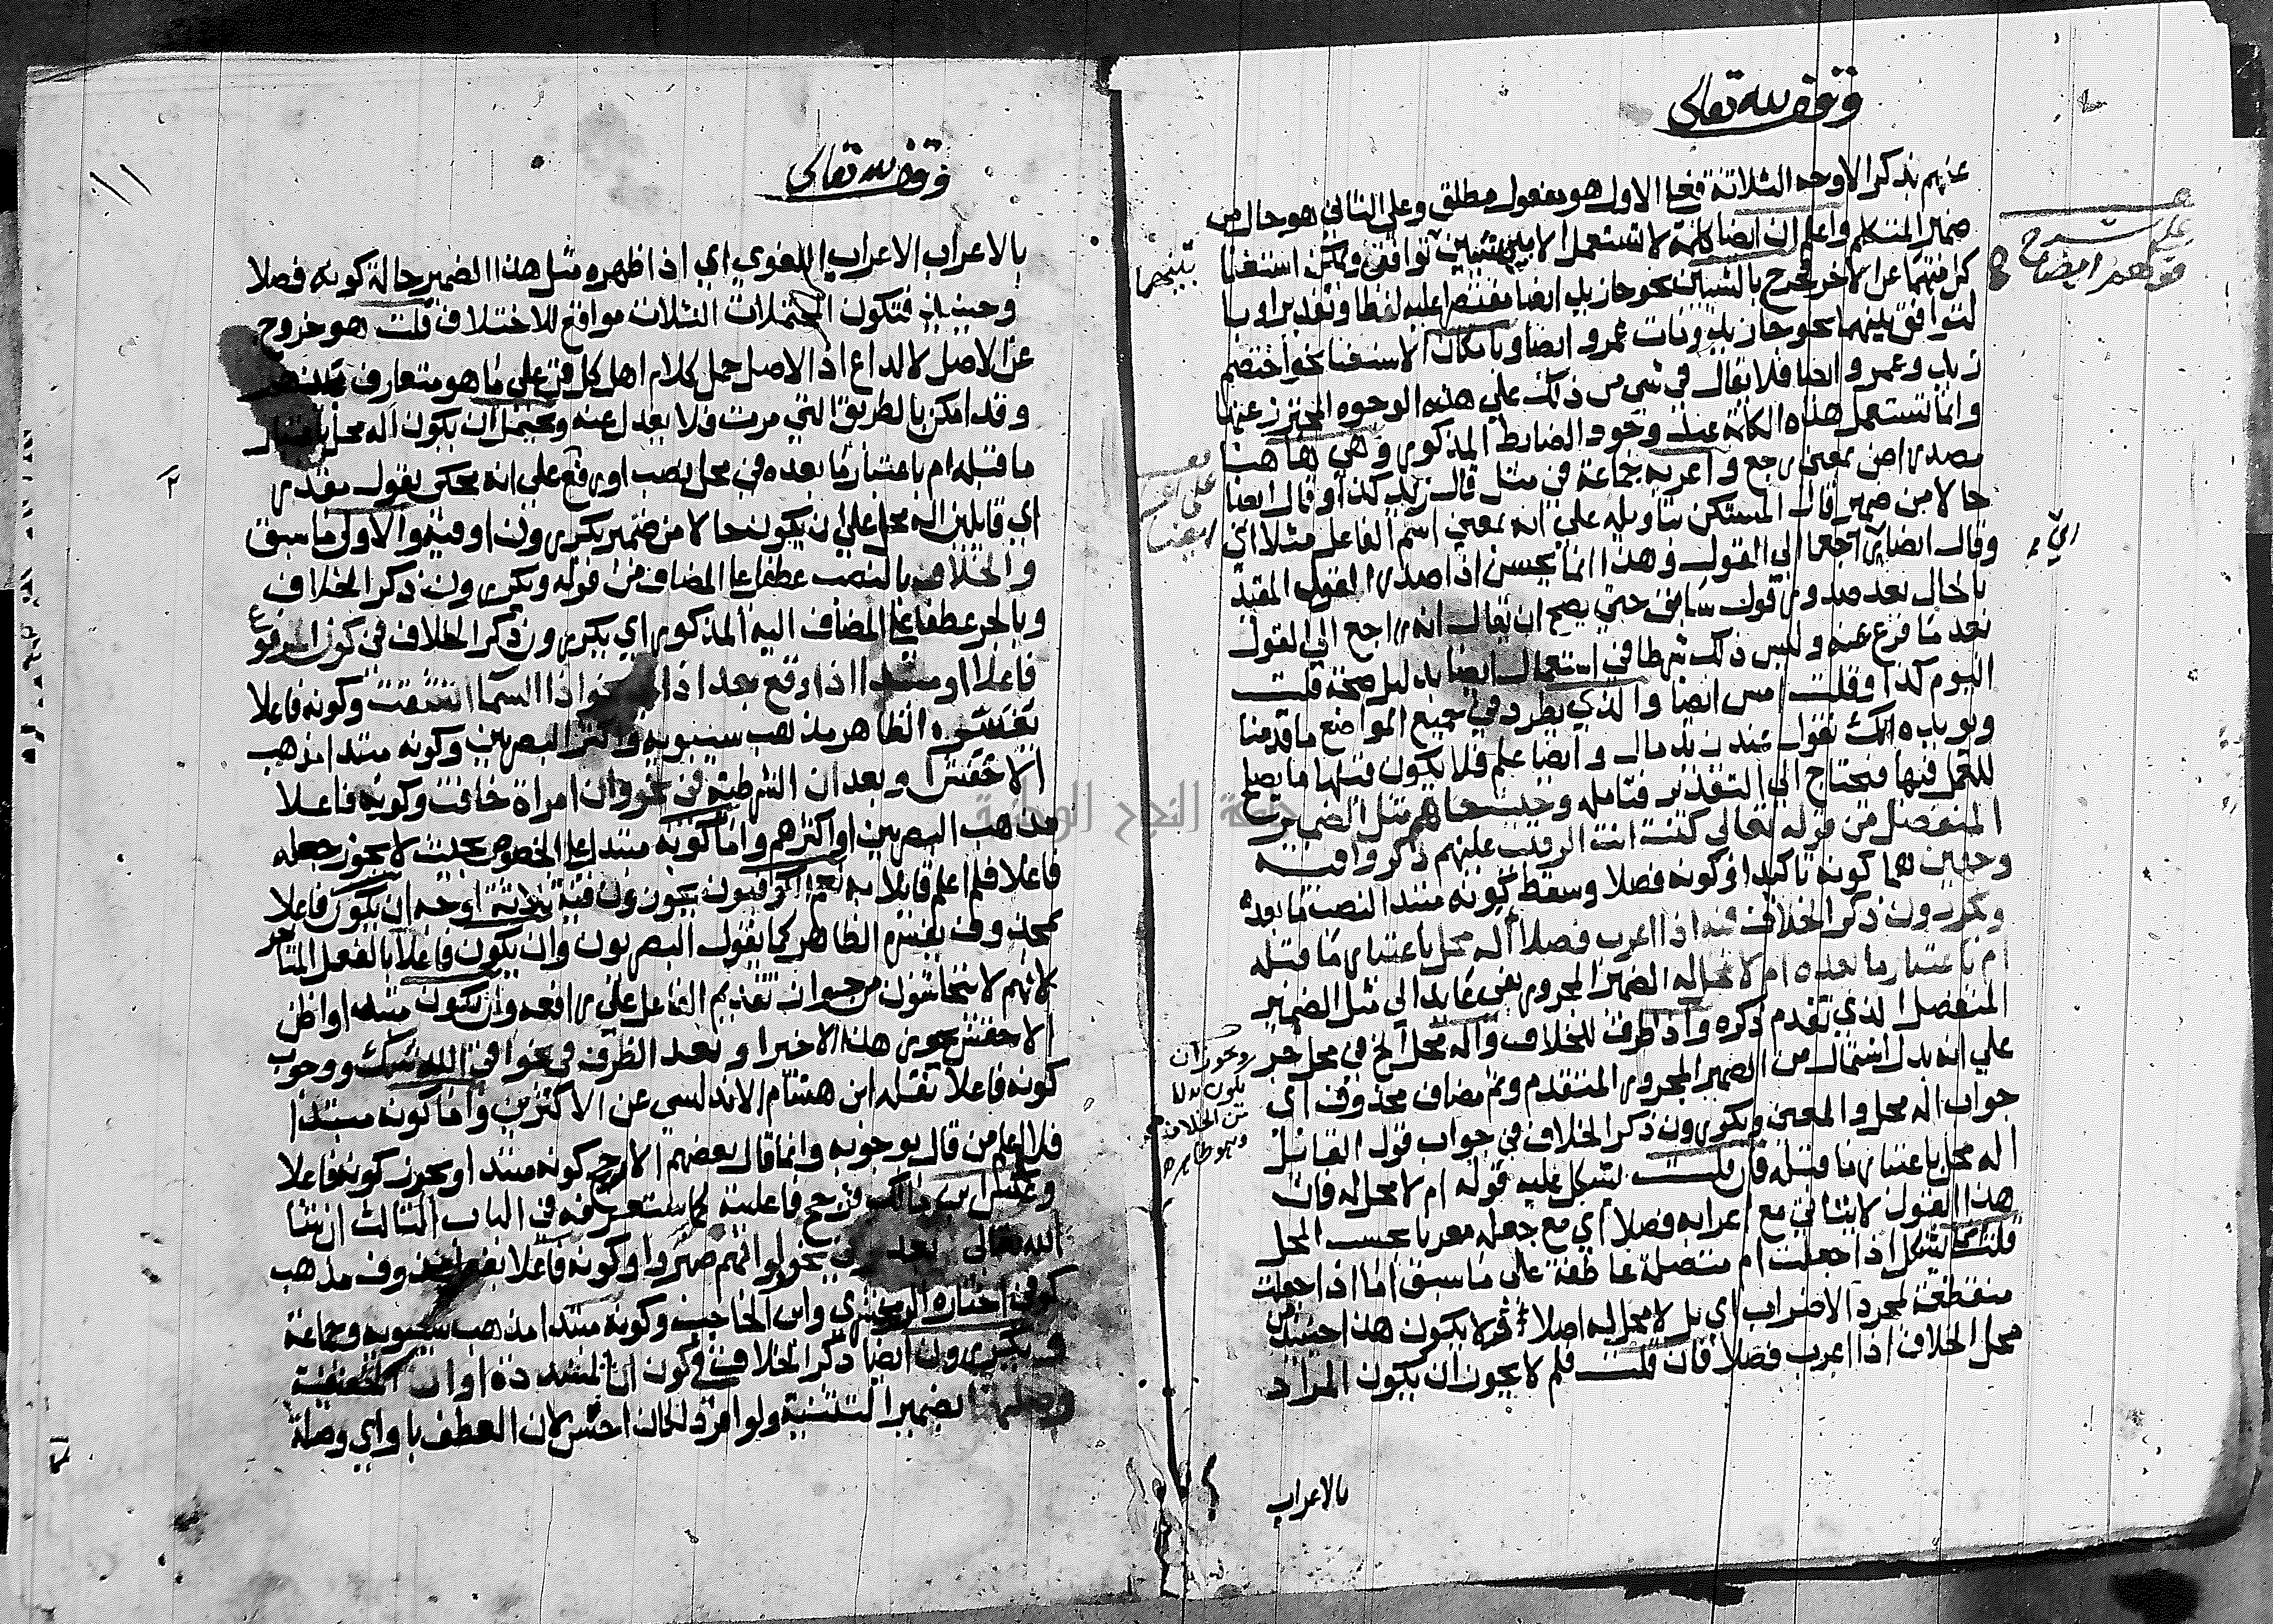 وقف لله تعالى
عنهم بذكر الاوجه الثلاثة فعلى الاول هو مفعول مطلق وعلى الثاني هو حال من
ضمير المتكلم واعلم ان ايضا كلمة لا تستعمل الا بين شيئين توافق ويمكن استغنا
كل منهما عن الاخر فخرج بالشيئين نحو جا زيد ايضا مقتصرا عليه لفظا وتقديرا وبا
لتوافق بينهما نحو جا زيد ومات عمرو ايضا وبامكان الاستغنا نحو اختصم
زيد وعمرو ايضا فلا يقال في شي من ذلك على هذه الوجوه المحترز عنها
وانما تستعمل هذه الكلمة عند وجود الضابط المذكور وهي هاهنا
مصدر اض بمعنى رجع واعربه جماعة في مثل قال زيد كذا وقال ايضا
حالا من ضمير قال المستكن بتاويله على انه بمعنى اسم الفاعل مثلا اي
وقال ايضا راجعا الى القول وهذا انما يحسن اذا صدر القول المقيد
بالحال بعد صدور قول سابق حتى يصح ان يقال انه راجع الى القول
بعد ما فرغ عنه وليس ذلك شرطا في استعمال ايضا بدليل صحة قلت
اليوم كذا وقلت امس ايضا والذي يطرد في جميع المواضع ما قدمنا
ويويده انك تقول عنده مال وايضا علم فلا يكون قبلها ما يصلح
للعمل فيها فيحتاج الى التقدير فتامله
المنفصل من قوله تعالى كنت انت الرقيب عليهم ذكروا فيه
وجهين هما كونه تاكيدا وكونه فصلا وسقط كونه مبتدا لنصب ما بعده
ويكررون ذكر الخلاف فيه اذا اعرب فصلا أله محل باعتبار ما قبله
ام باعتبار ما بعده ام لا محل له الضمير المجرور بفي عايد الى مثل الضمير
المنفصل الذي تقدم ذكره واذا ظرف للخلاف وأله محل الخ في محل جر
على انه بدل اشتمال من الضمير المجرور المتقدم وثم مضاف محذوف اي
جواب أله محل والمعنى ويكررون ذكر الخلاف في جواب قول القايل
أله محل باعتبار ما قبله فان قلت يشكل عليه قوله ام لا محل له فان
هذا القول لا يتاتي مع اعرابه فصلا اي مع جعله معربا بحسب المحل
قلت انما يشكل اذا جعلت ام متصلة عاطفة على ما سبق اما اذا جعلت
منقطعة لمجرد الاضراب اي بل لا محل له اصلا فلا يكون هذا حينئذ من
محل الخلاف اذا اعرب فصلا فان قلت فلم لا يجوز ان يكون المراد
بالاعراب
ويجوز ان
يكون بدلا
من الخلاف
وهو ظاهر
وقف لله تعالى
١١
بالاعراب الاعراب اللغوي اي اذا ظهره مثل هذا الضمير حالة كونه فصلا
وحينئذ فتكون المحتملات الثلاث مواقع للاختلاف قلت هو خروج
عن الاصل لا لداع اذ الاصل حمل كلام اهل كل فن على ما هو متعارف عندهم
وقد امكن بالطريق التي مرت فلا يعدل عنه ويحتمل ان يكون أله محل باعتبار
ما قبله ام باعتبار ما بعده في محل نصب او رفع على انه محكي بقول مقدر
اي قايلين أله محل على ان يكون حالا من ضمير يكررون او فيه والاولى ما سبق
والخلاف بالنصب عطفا على المضاف من قوله ويكررون ذكر الخلاف
وبالجر عطفا على المضاف اليه المذكور اي يكررون ذكر الخلاف في كون المرفوع
فاعلا او مبتدا اذا وقع بعد اذا نحو اذا السما انشقت وكونه فاعلا
تفسيره الظاهر مذهب سيبويه واكثر البصريين وكونه مبتدا مذهب
الاخفش وبعد ان الشرطية في نحو وان امراة خافت وكونه فاعلا
مذهب البصريين او اكثرهم واما كونه مبتدا على الخصوص بحيث لا يجوز جعله
فاعلا فلم اعلم قايلا به نعم الكوفيون يجوزون فيه ثلاثة اوجه ان يكون فاعلا
بمحذوف يفسره الظاهر كما يقول البصريون وان يكون فاعلا بالفعل المتاخر
لانهم لا يتحاشون من جواز تقديم الفاعل على رافعه وان يكون مبتدا واظن
الاخفش يجوز هذا الاخير او بعد الظرف في نحو افي الله شك ووجوب
كونه فاعلا نقله ابن هشام الاندلسي عن الاكثرين واما كونه مبتدا
فلا اعلم من قال بوجوبه وانما قال بعضهم الارجح كونه مبتدا ويجوز كونه فاعلا
وعكس ابن مالك فرجح فاعليته كما ستعرفه في الباب الثالث ان شا
الله تعالى او بعد لو في نحو ولو انهم صبروا وكونه فاعلا بفعل محذوف مذهب
كوفي اختاره الزمخشري وابن الحاجب وكونه مبتدا مذهب سيبويه وجماعة
ويكررون ايضا ذكر الخلاف في كون ان المشددة او ان المخففة
وصلتهما بضمير التثنية ولو افرد لكان احسن لان العطف باو اي وصلة